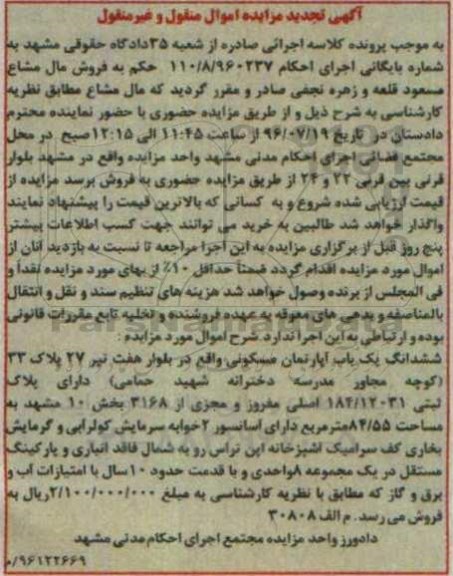 آگهی تجدید مزایده اموال منقول و غیرمنقول
به موجب پرونده کلاسه اجرائی صادره از شعبه ۳۵دادگاه حقوقی مشهد به
شماره بایگانی اجرای احکام ۱۱۰/۸/۹۶۰۲۳۷ حکم به فروش مال مشاع
مسعود قلعه و زهره نجفی صادر و مقرر گردید که مال مشاع مطابق نظریه
کارشناسی به شرح ذیل و از طریق مزایده حضوری با حضور نماینده محترم
دادستان در تاریخ ۹۶/۰۷/۱۹ از ساعت ۱۱:۴۵ الی ۱۲:۱۵صبح در محل
مجتمع قضائی اجرای احکام مدنی مشهد واحد مزایده واقع در مشهد بلوار
قرنی بین قرنی ۲۲ و ۲۴ از طریق مزایده حضوری به فروش برسد مزایده از
قیمت ارزیابی شده شروع و به کسانی که بالاترین قیمت را پیشنهاد نمایند
واگذار خواهد شد طالبین به خرید می توانند جهت کسب اطلاعات بیشتر
پنج روز قبل از برگزاری مزایده به این اجرا مراجعه تا نسبت به بازدید آنان از
اموال مورد مزایده اقدام گردد ضمناً حداقل ۱۰٪ از بهای مورد مزایده نقداً و
فی المجلس از برنده وصول خواهد شد هزینه های تنظیم سند و نقل و انتقال
بالمناصفه و بدهی های معوقه به عهده فروشنده و تخلیه تابع مقررات قانونی
بوده و ارتباطی به این اجرا ندارد.شرح اموال مورد مزایده :
ششدانگ یک باب آپارتمان مسکونی واقع در بلوار هفت تیر ۲۷ پلاک ۳۳
(کوچه مجاور مدرسه دخترانه شهید حمامی) دارای پلاک
ثبتی ۱۸۴/۱۲۰۳۱ اصلی مفروز و مجزی از ۳۱۶۸ بخش ۱۰ مشهد به
مساحت ۸۴/۵۵مترمربع دارای آسانسور ۲خوابه سرمایش کولرآبی و گرمایش
بخاری کف سرامیک آشپزخانه اپن تراس رو به شمال فاقد انباری و پارکینگ
مستقل در یک مجموعه ۸واحدی و با قدمت حدود ۱۰سال با امتیازات آب و
برق و گاز که مطابق با نظریه کارشناسی به مبلغ ۲/۱۰۰/۰۰۰/۰۰۰ریال به
فروش می رسد. م الف ۳۰۸۰۸
دادورز واحد مزایده مجتمع اجرای احکام مدنی مشهد
۹۶۱۲۲۶۶۹/م
ParsNamadData